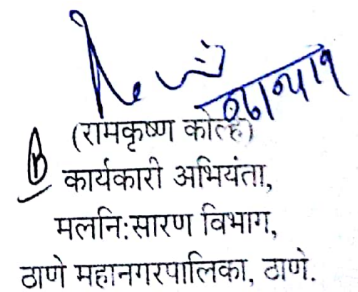 (रामकृष्ण कोल्हे)
कार्यकारी अभियंता,
मलनि:सारण विभाग,
ठाणे महानगरपालिका, ठाणे.